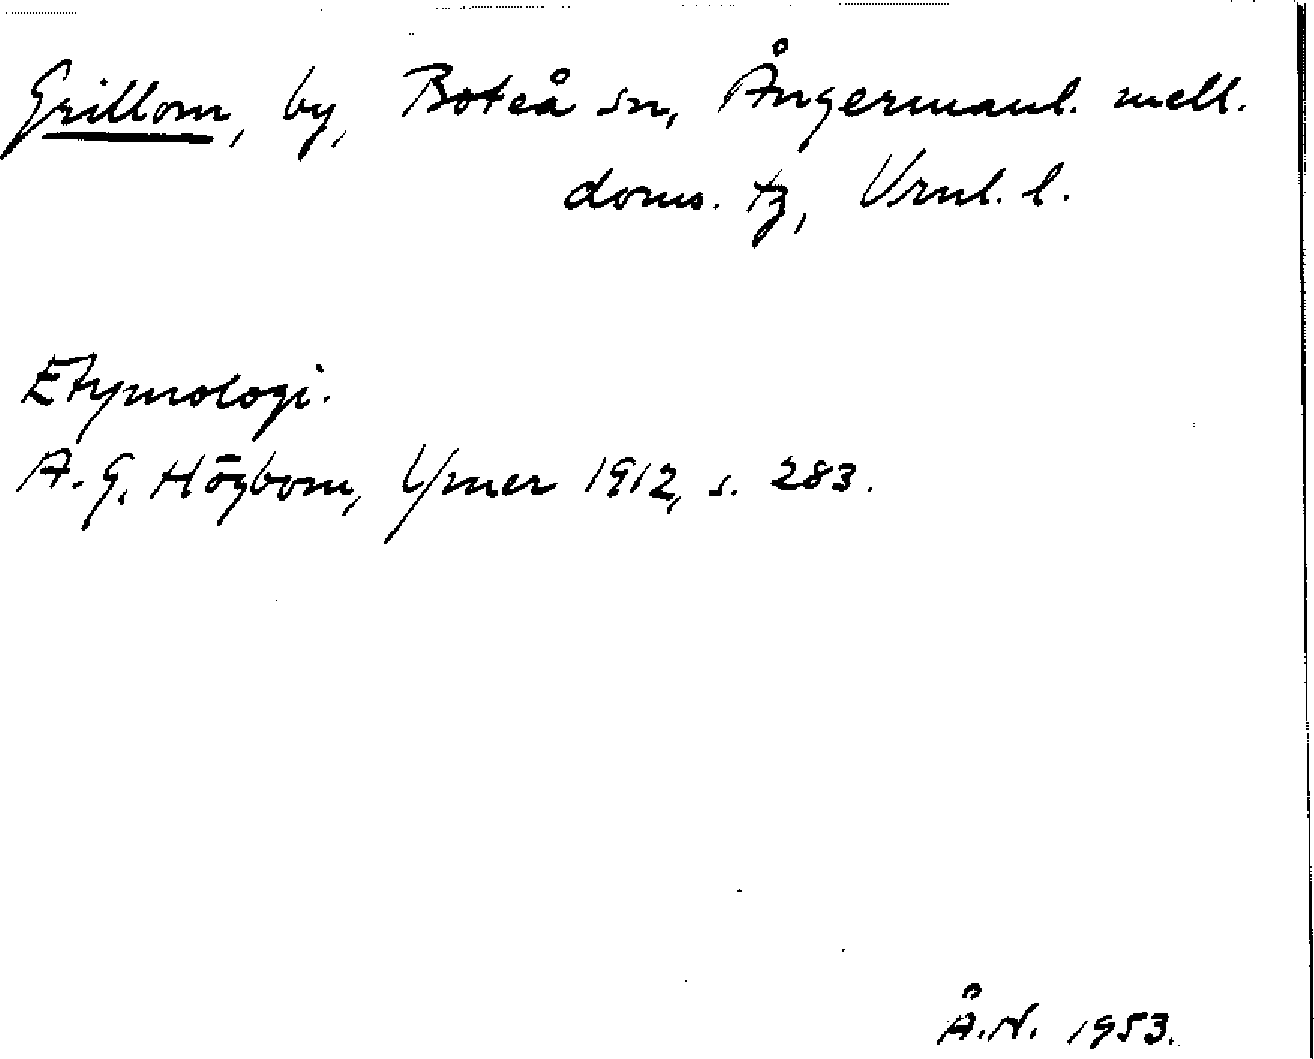 Grillom, by, Boteå sn, Ångermanl. mell.
doms. tg, Vrnl. l.
Etymologi.
A. G. Högbom, Ymer 1912, s. 283.
Å.N. 1953.